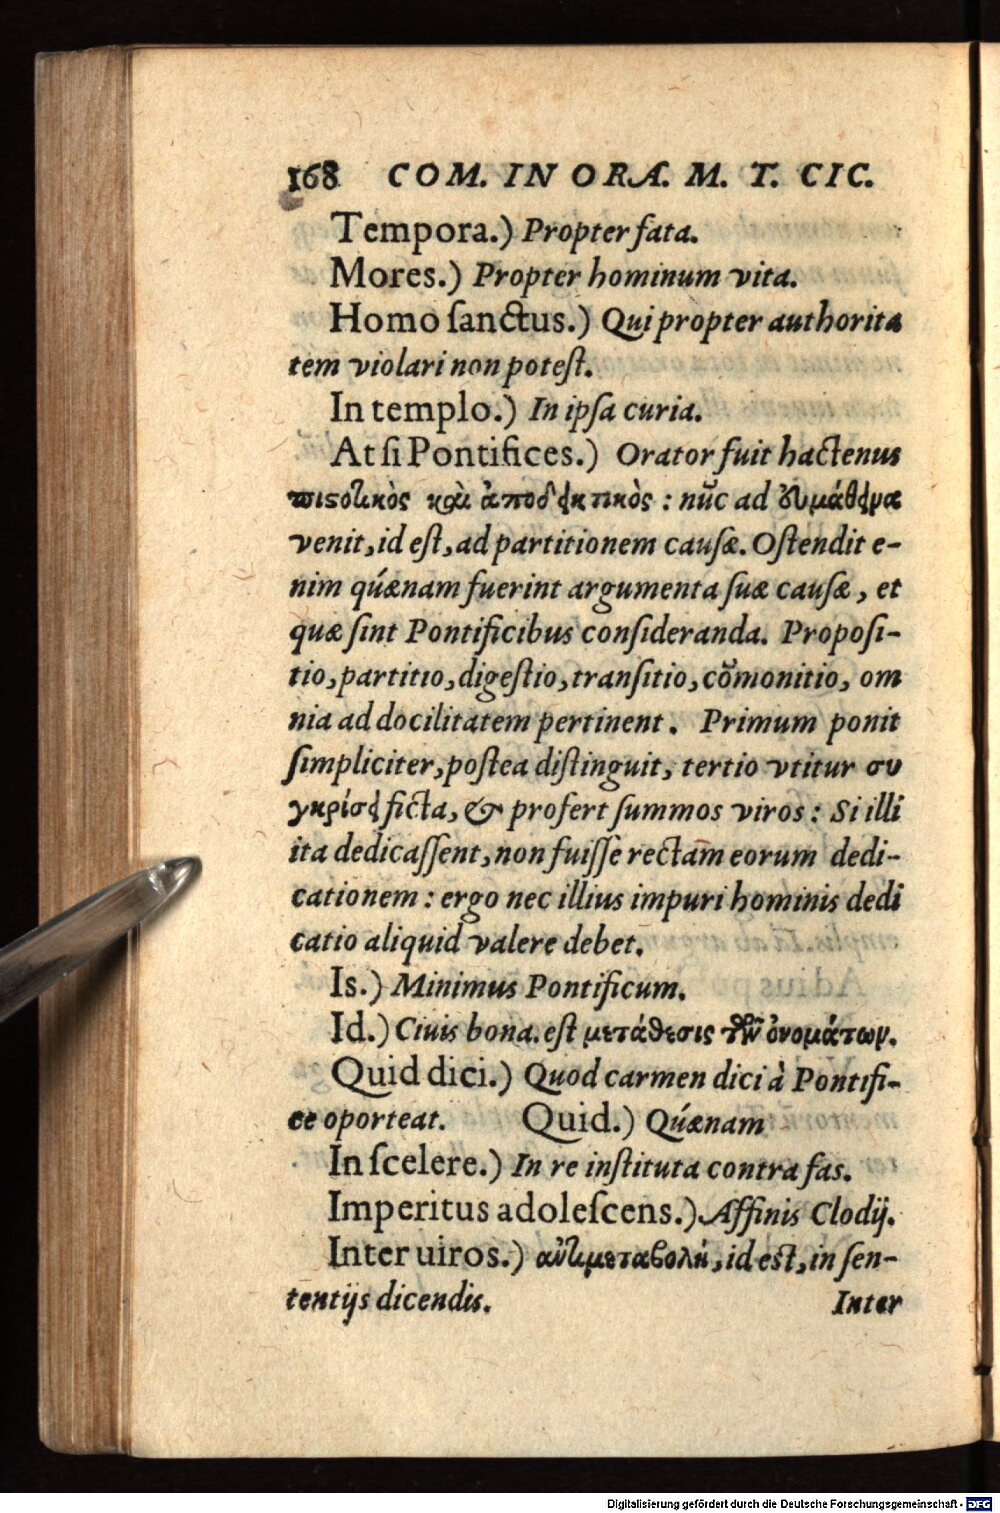 168 COM. IN ORA. M. T. CIC.
Tempora.) Propter fata.
Mores.) Propter hominum vita.
Homo ſanctus.) Qui propter authorita
tem violari non poteſt.
In templo.) In ipſa curia.
At ſi Pontifices.) Orator fuit hactenus
πιςοτικὸς καὶ ἀποδεικτικὸς : nūc ad
venit, id eſt, ad partitionem cauſæ. Oſtendit e-
nim quǽnam fuerint argumenta ſuæ cauſæ, et
quæ ſint Pontificibus conſideranda. Propoſi-
tio, partitio, digeſtio, tranſitio, cōmonitio, om
nia ad docilitatem pertinent. Primum ponit
ſimpliciter, poſtea diſtinguit, tertio vtitur συ
γκρίσει ficta, & profert ſummos viros: Si illi
ita dedicaſſent, non fuiſſe rectam eorum dedi-
cationem: ergo nec illius impuri hominis dedi
catio aliquid valere debet.
Is.) Minimus Pontificum.
Id.) Ciuis bona. eſt μετάθεσις τῶν ὀνομάτων.
Quid dici.) Quod carmen dici à Pontifi-
ce oporteat. Quid.) Quǽnam
In ſcelere.) In re inſtituta contra fas.
Imperitus adoleſcens.) Affinis Clodij.
Inter uiros.) ἀντιμεταβολή, id eſt, in ſen-
tentijs dicendis. Inter
Digitalisierung gefördert durch die Deutsche Forschungsgemeinschaft - DFG